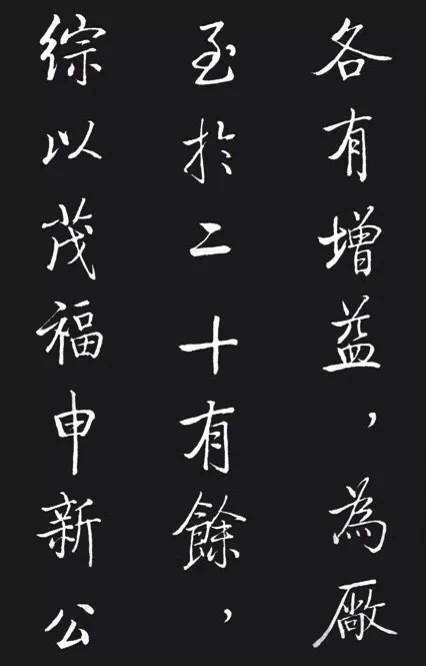 各有增益，為廠
至於二十有餘，
綜以茂福申新公